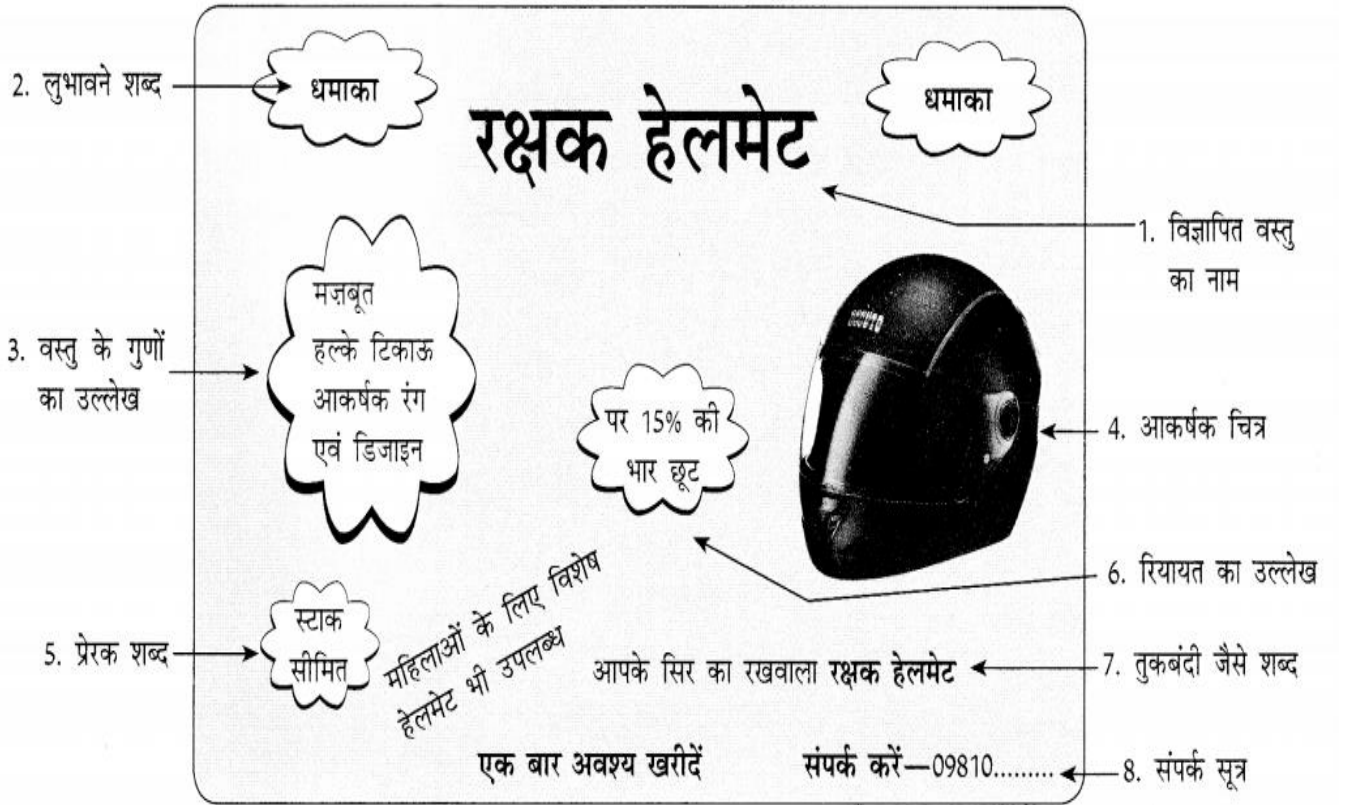 2. लुभावने शब्द
धमाका
रक्षक हेलमेट
धमाका
1. विज्ञापित वस्तु
का नाम
3. वस्तु के गुणों
का उल्लेख
मज़बूत
हल्के टिकाऊ
आकर्षक रंग
एवं डिजाइन
पर 15% की
भार छूट
4. आकर्षक चित्र
6. रियायत का उल्लेख
5. प्रेरक शब्द
स्टाक
सीमित
महिलाओं के लिए विशेष
हेलमेट भी उपलब्ध
आपके सिर का रखवाला रक्षक हेलमेट
7. तुकबंदी जैसे शब्द
एक बार अवश्य खरीदें
संपर्क करें—09810.........
8. संपर्क सूत्र